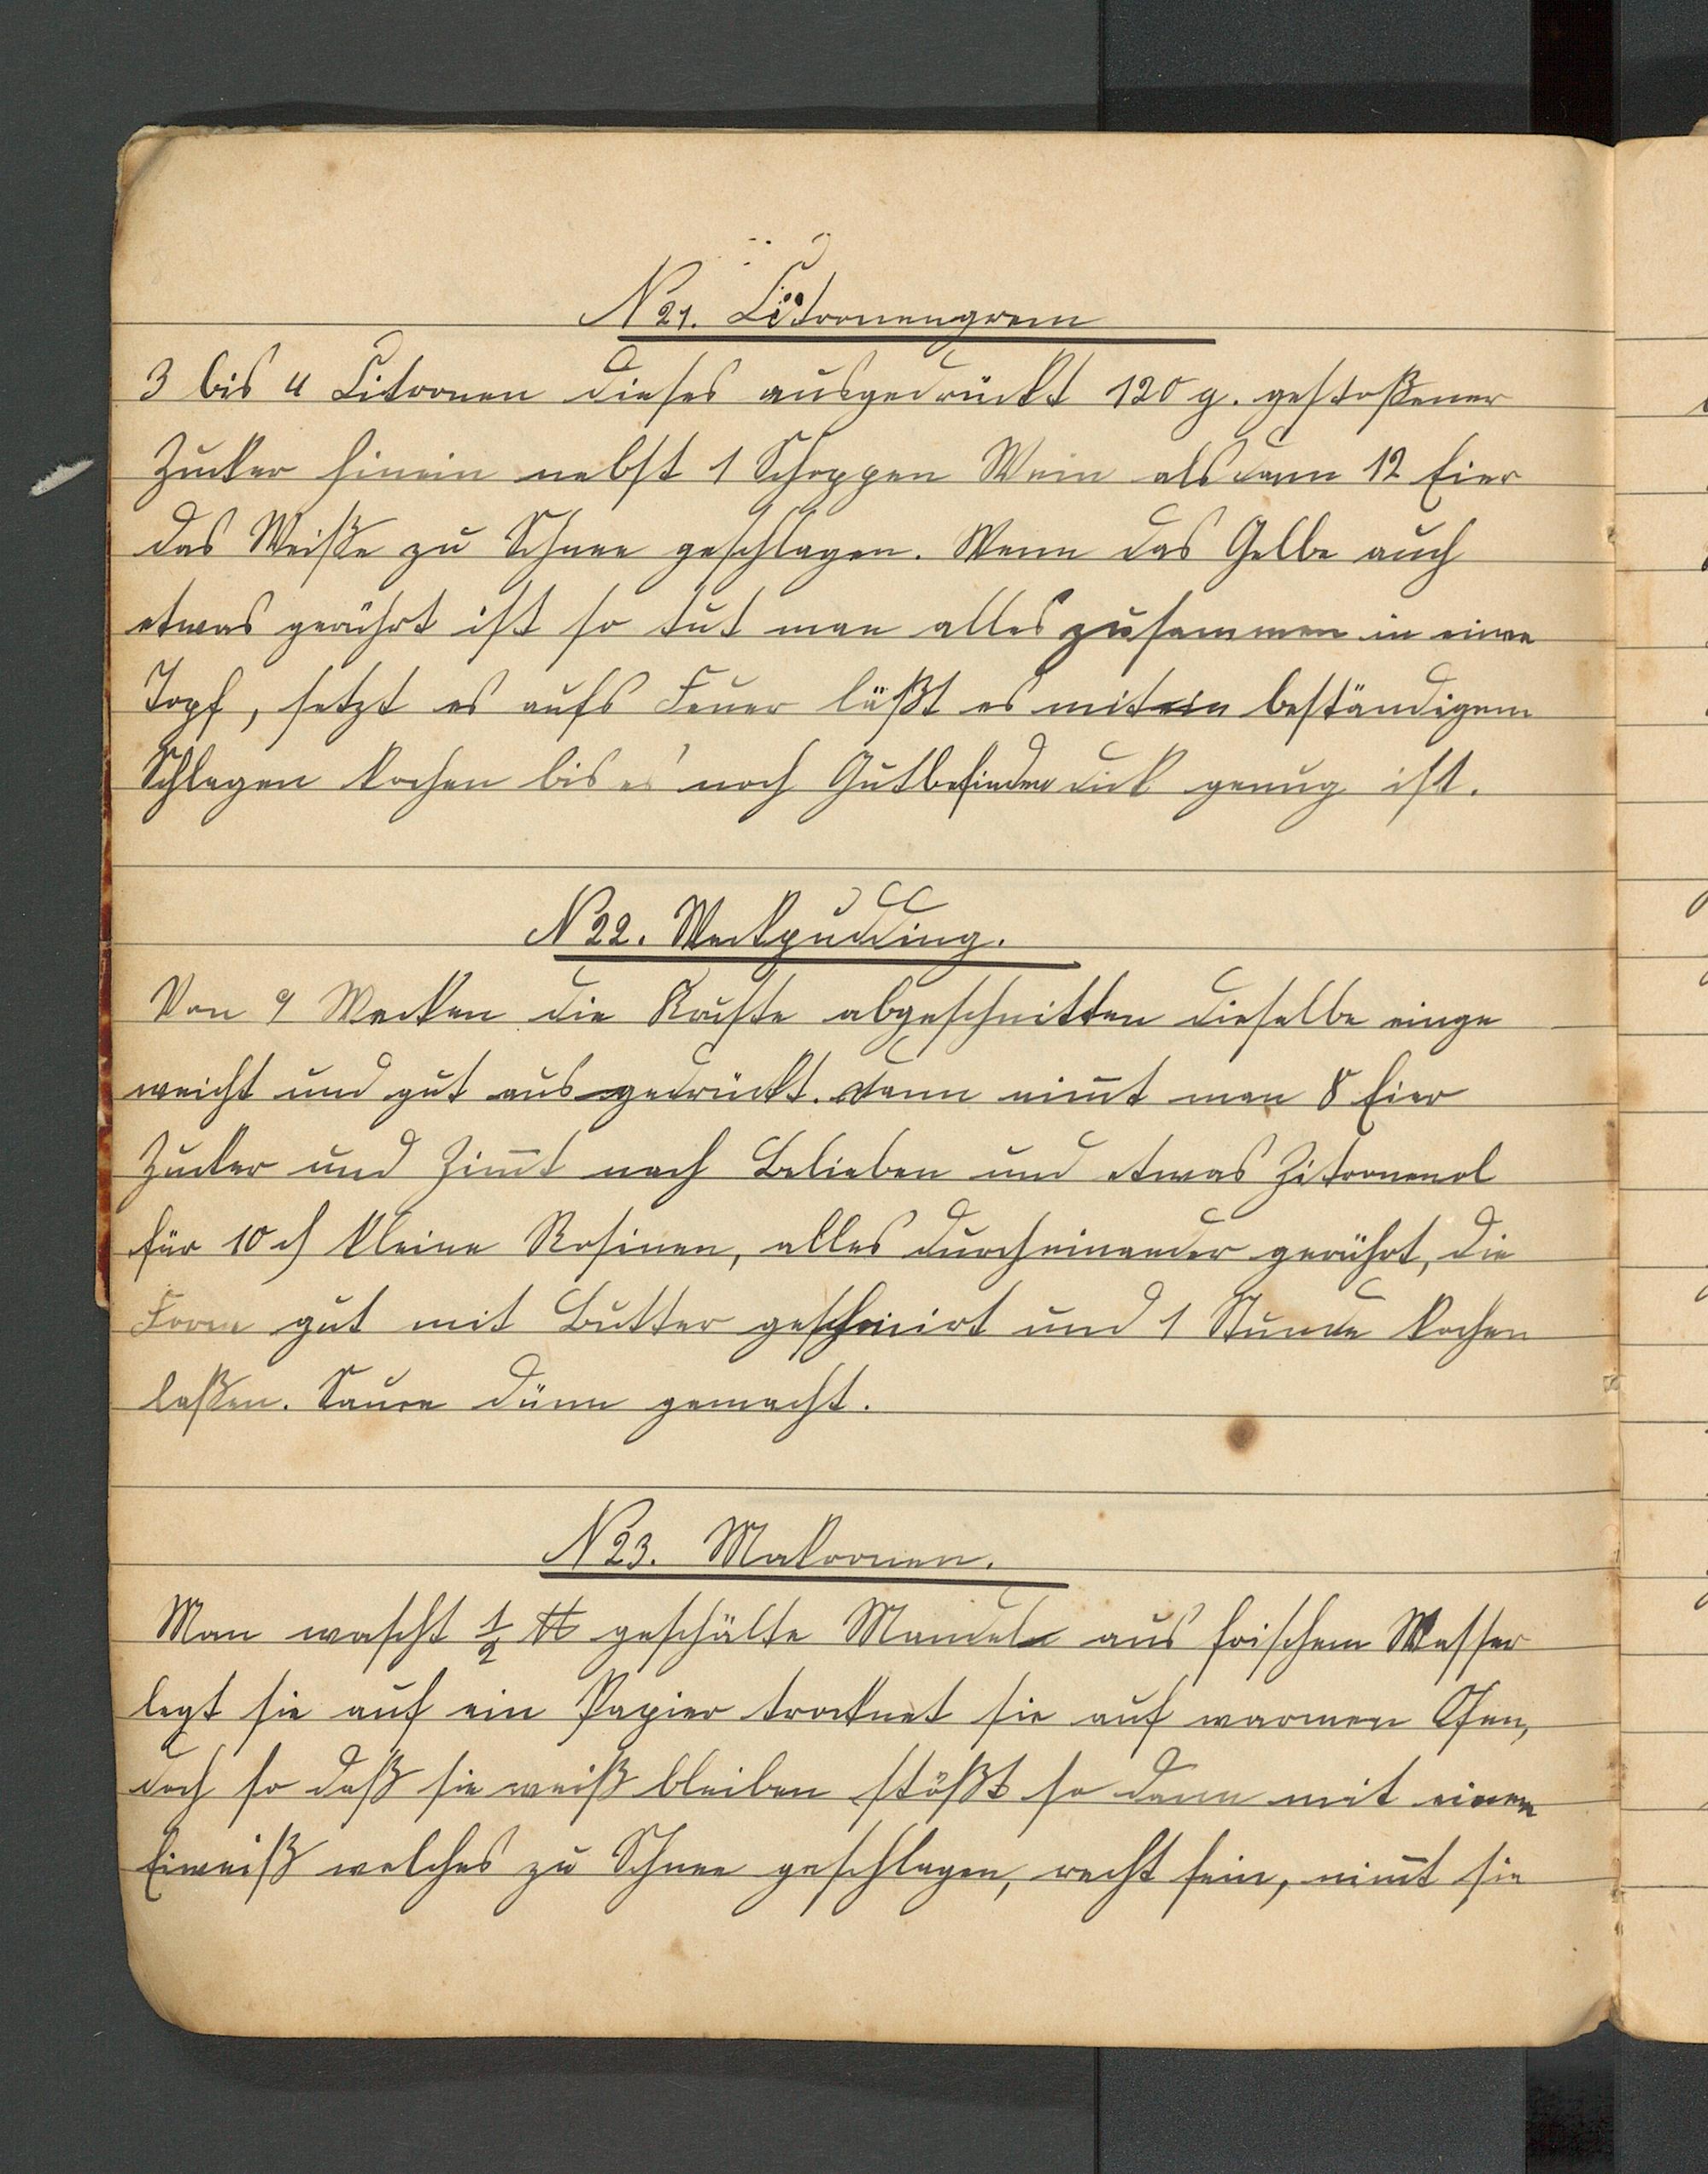 N 21. Citronengrem
3 bis 4 Citronen dieses ausgedrückt 120 g. gestoßener
Zucker hinein nebst 1 Schoppen Wein alsdann 12 Eier
das Weiße zu Schnee geschlagen. Wenn das Gelbe auch
etwas gerührt ist so tut man alles zusammen in einen
Topf, setzt es aufs Feuer läßt es mit beständigem
Schlagen kochen bis es nach Gutbefinden dick genug ist.
N 22. Weckpudding.
Von 9 Wecken die Kruste abgeschnitten dieselbe einge
weicht und gut ausgedrückt. dann nim̅t man 8 Eier
Zucker und Zim̅t nach Belieben und etwas Zitronenol
für 10 ₰ kleine Rosinen, alles durcheinander gerührt, die
Form gut mit Butter geschmirt und 1 Stunde kochen
laßen. Sauce dünn gemacht.
N 23. Makronen.
Man wascht ½ ℔ geschälte Mandeln aus frischem Wasser
legt sie auf ein Papier trocknet sie auf warmen Ofen,
doch so daß sie weiß bleiben stößt so dann mit einem
Eiweiß welches zu Schnee geschlagen, recht fein, nim̅t sie